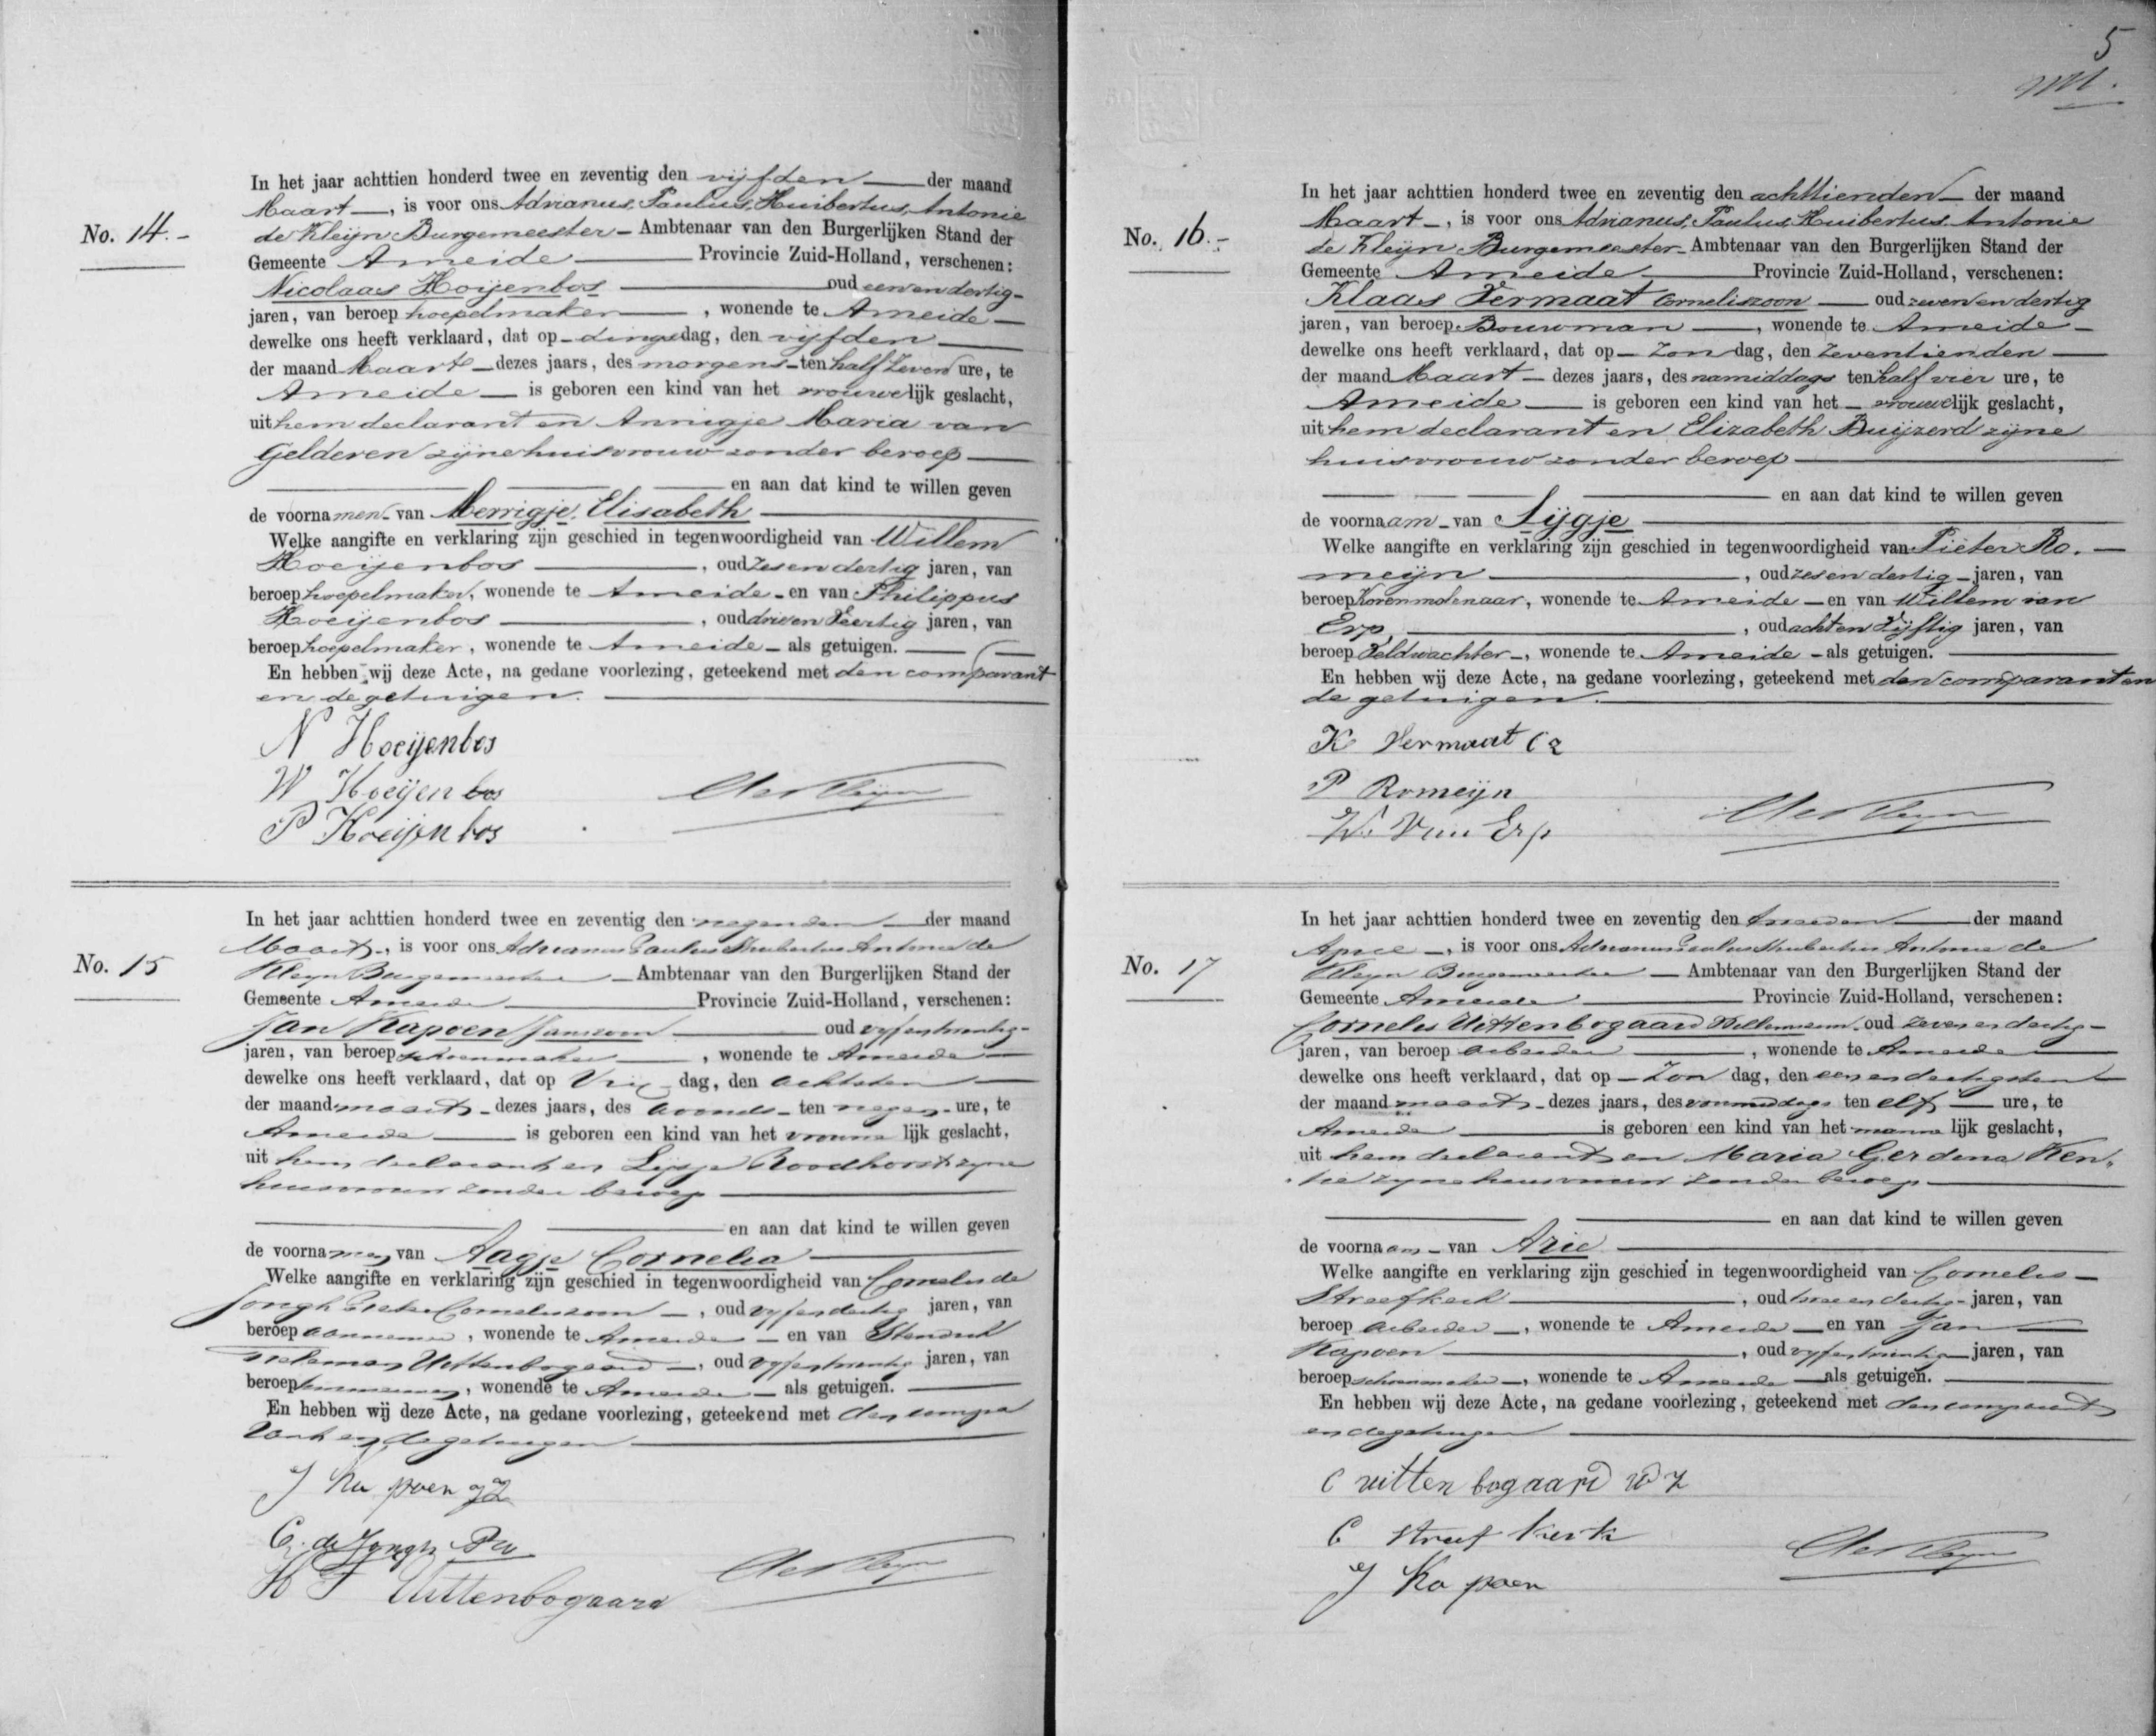 No. 14.-
In het jaar achttien honderd twee en zeventig den vijfden der maand
Maart, is voor ons Adrianus, Paulus, Huibertus, Antonie
de Kleijn Burgemeester Ambtenaar van den Burgerlijken Stand der
Gemeente Ameide Provincie Zuid-Holland, verschenen:
Nicolaas Hoijenbos oud een en dertig
jaren, van beroep hoepelmaker, wonende te Ameide
dewelke ons heeft verklaard, dat op dingsdag, den vijfden
der maand Maart dezes jaars, des morgens ten half zeven ure, te
Ameide is geboren een kind van het vrouwelijk geslacht,
uit hem declarant en Annigje Maria van
Gelderen zijne huisvrouw zonder beroep
en aan dat kind te willen geven
de voornamen van Merrigje Elisabeth
Welke aangifte en verklaring zijn geschied in tegenwoordigheid van Willem
Hoeijenbos, oud zes en dertig jaren, van
beroep hoepelmaker, wonende te Ameide en van Philippus
Hoeijenbos, oud drie en Veertig jaren, van
beroep hoepelmaker, wonende te Ameide als getuigen.
En hebben wij deze Acte, na gedane voorlezing, geteekend met den comparant
en de getuigen.
N Hoeijenbos
W Hoeijenbos
P Hoeijenbos
No. 15
In het jaar achttien honderd twee en zeventig den negenden der maand
Maart, is voor ons Adrianus Paulus Huibertus Antonie de
Kleyn Burgemeester Ambtenaar van den Burgerlijken Stand der
Gemeente Ameide Provincie Zuid-Holland, verschenen:
Jan Kapoen Janszoon oud vyf en twintig
jaren, van beroep schoenmaker, wonende te Ameide
dewelke ons heeft verklaard, dat op Vrij dag, den achtsten
der maand maart dezes jaars, des avonds ten negen ure, te
Ameide is geboren een kind van het vrouwe lijk geslacht,
uit hem declarant en Lijsje Roodhorst zyne
huisvrouw zonder beroep
en aan dat kind te willen geven
de voornamen van Aagje Cornelia
Welke aangifte en verklaring zijn geschied in tegenwoordigheid van Cornelis de
Jongh Pieter Corneliszoon, oud vyf en dertig jaren, van
beroep aannemer, wonende te Ameide en van Hendrik
Tieleman Uittenbogaard, oud vyf en twintig jaren, van
beroep timmerman, wonende te Ameide als getuigen.
En hebben wij deze Acte, na gedane voorlezing, geteekend met den compa
rant en de getuigen
J Kapoen JZ
C. de Jongh Pz
H T Uittenbogaard
5
No. 16.-
In het jaar achttien honderd twee en zeventig den achttienden der maand
Maart, is voor ons Adrianus, Paulus, Huibertus Antonie
de Kleijn Burgemeester Ambtenaar van den Burgerlijken Stand der
Gemeente Ameide Provincie Zuid-Holland, verschenen:
Klaas Vermaat Corneliszoon oud zeven en dertig
jaren, van beroep Bouwman, wonende te Ameide
dewelke ons heeft verklaard, dat op Zon dag, den Zeventienden
der maand Maart dezes jaars, des namiddags ten half vier ure, te
Ameide is geboren een kind van het vrouwelijk geslacht,
uit hem declarant en Elizabeth Buijzerd zijne
huisvrouw zonder beroep
en aan dat kind te willen geven
de voornaam van Sijgje
Welke aangifte en verklaring zijn geschied in tegenwoordigheid van Pieter Ro-
meijn, oud zes en dertig jaren, van
beroep Korenmolenaar, wonende te Ameide en van Willem van
Erp, oud acht en Vijftig jaren, van
beroep Veldwachter, wonende te Ameide als getuigen.
En hebben wij deze Acte, na gedane voorlezing, geteekend met den comparant en
de getuigen.
K Vermaat Cz
P Romeijn
W. Van Erp
No. 17
In het jaar achttien honderd twee en zeventig den tweeden der maand
April, is voor ons Adrianus Paulus Huibertus Antonie de
Kleyn Burgemeester Ambtenaar van den Burgerlijken Stand der
Gemeente Ameide Provincie Zuid-Holland, verschenen:
Cornelis Uittenbogaard Willemszoon oud zeven en dertig
jaren, van beroep arbeider, wonende te Ameide
dewelke ons heeft verklaard, dat op Zon dag, den een en dertigsten
der maand maart dezes jaars, des voormiddags ten elf ure, te
Ameide is geboren een kind van het manne lijk geslacht,
uit hem declarant en Maria Gerdina Ken-
tie zyne huisvrouw zonder beroep
en aan dat kind te willen geven
de voornaam van Arie
Welke aangifte en verklaring zijn geschied in tegenwoordigheid van Cornelis
Streefkerk, oud twee en dertig jaren, van
beroep arbeider, wonende te Ameide en van Jan
Kapoen, oud vyf en twintig jaren, van
beroep schoenmaker, wonende te Ameide als getuigen.
En hebben wij deze Acte, na gedane voorlezing, geteekend met den comparant
en de getuigen
C uittenbogaard wz
C streefkerk
J Kapoen